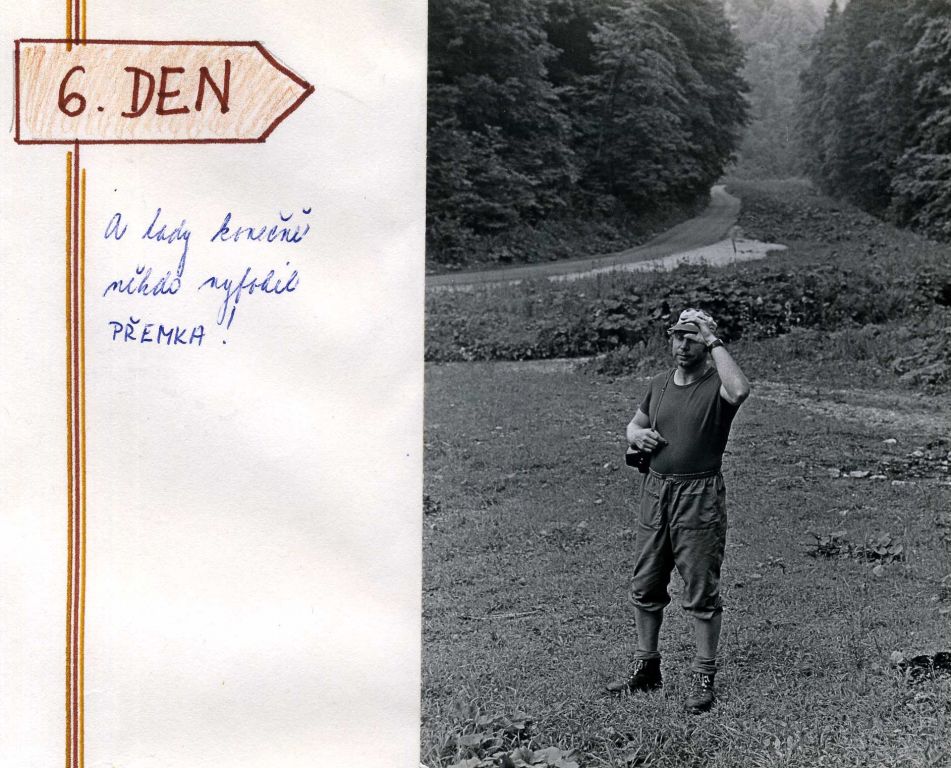 6. DEN
A tady konečně
někdo vyfotil
PŘEMKA!